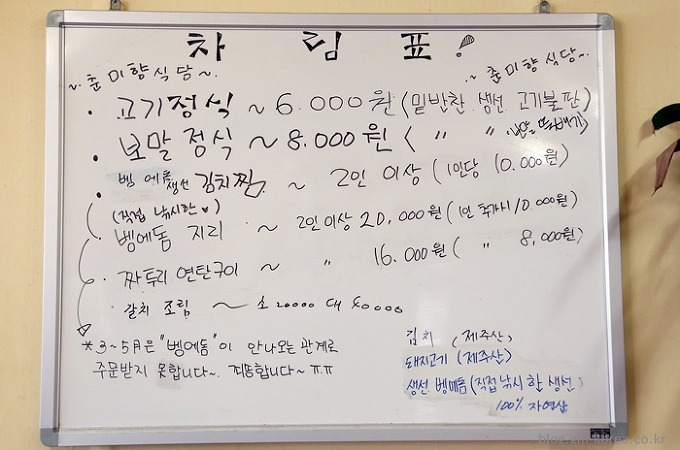 차림표!
~춘미향식당~
~춘미향식당~
· 고기정식 ~ 6.000원 (밑반찬 생선 고기불판)
· 보말정식 ~ 8.000원 ( " " 보말 뚝배기)
· 벵에돔 생선 김치찜 ~ 2인 이상 (1인당 10.000원)
(직접 낚시한♡)
벵에돔 지리 ~ 2인이상 20,000원 (1인 추가시 10.000원)
· 짜투리 연탄구이 ~ " 16.000원 ( " 8,000원)
· 갈치 조림 ~ 소 20000 대 40000
*3~5月은 "벵에돔"이 안나오는 관계로
주문받지 못합니다~. 죄송합니다~ ㅠㅠ
김치 (제주산)
돼지고기 (제주산)
생선 벵에돔 (직접 낚시한 생선)
100% 자연산